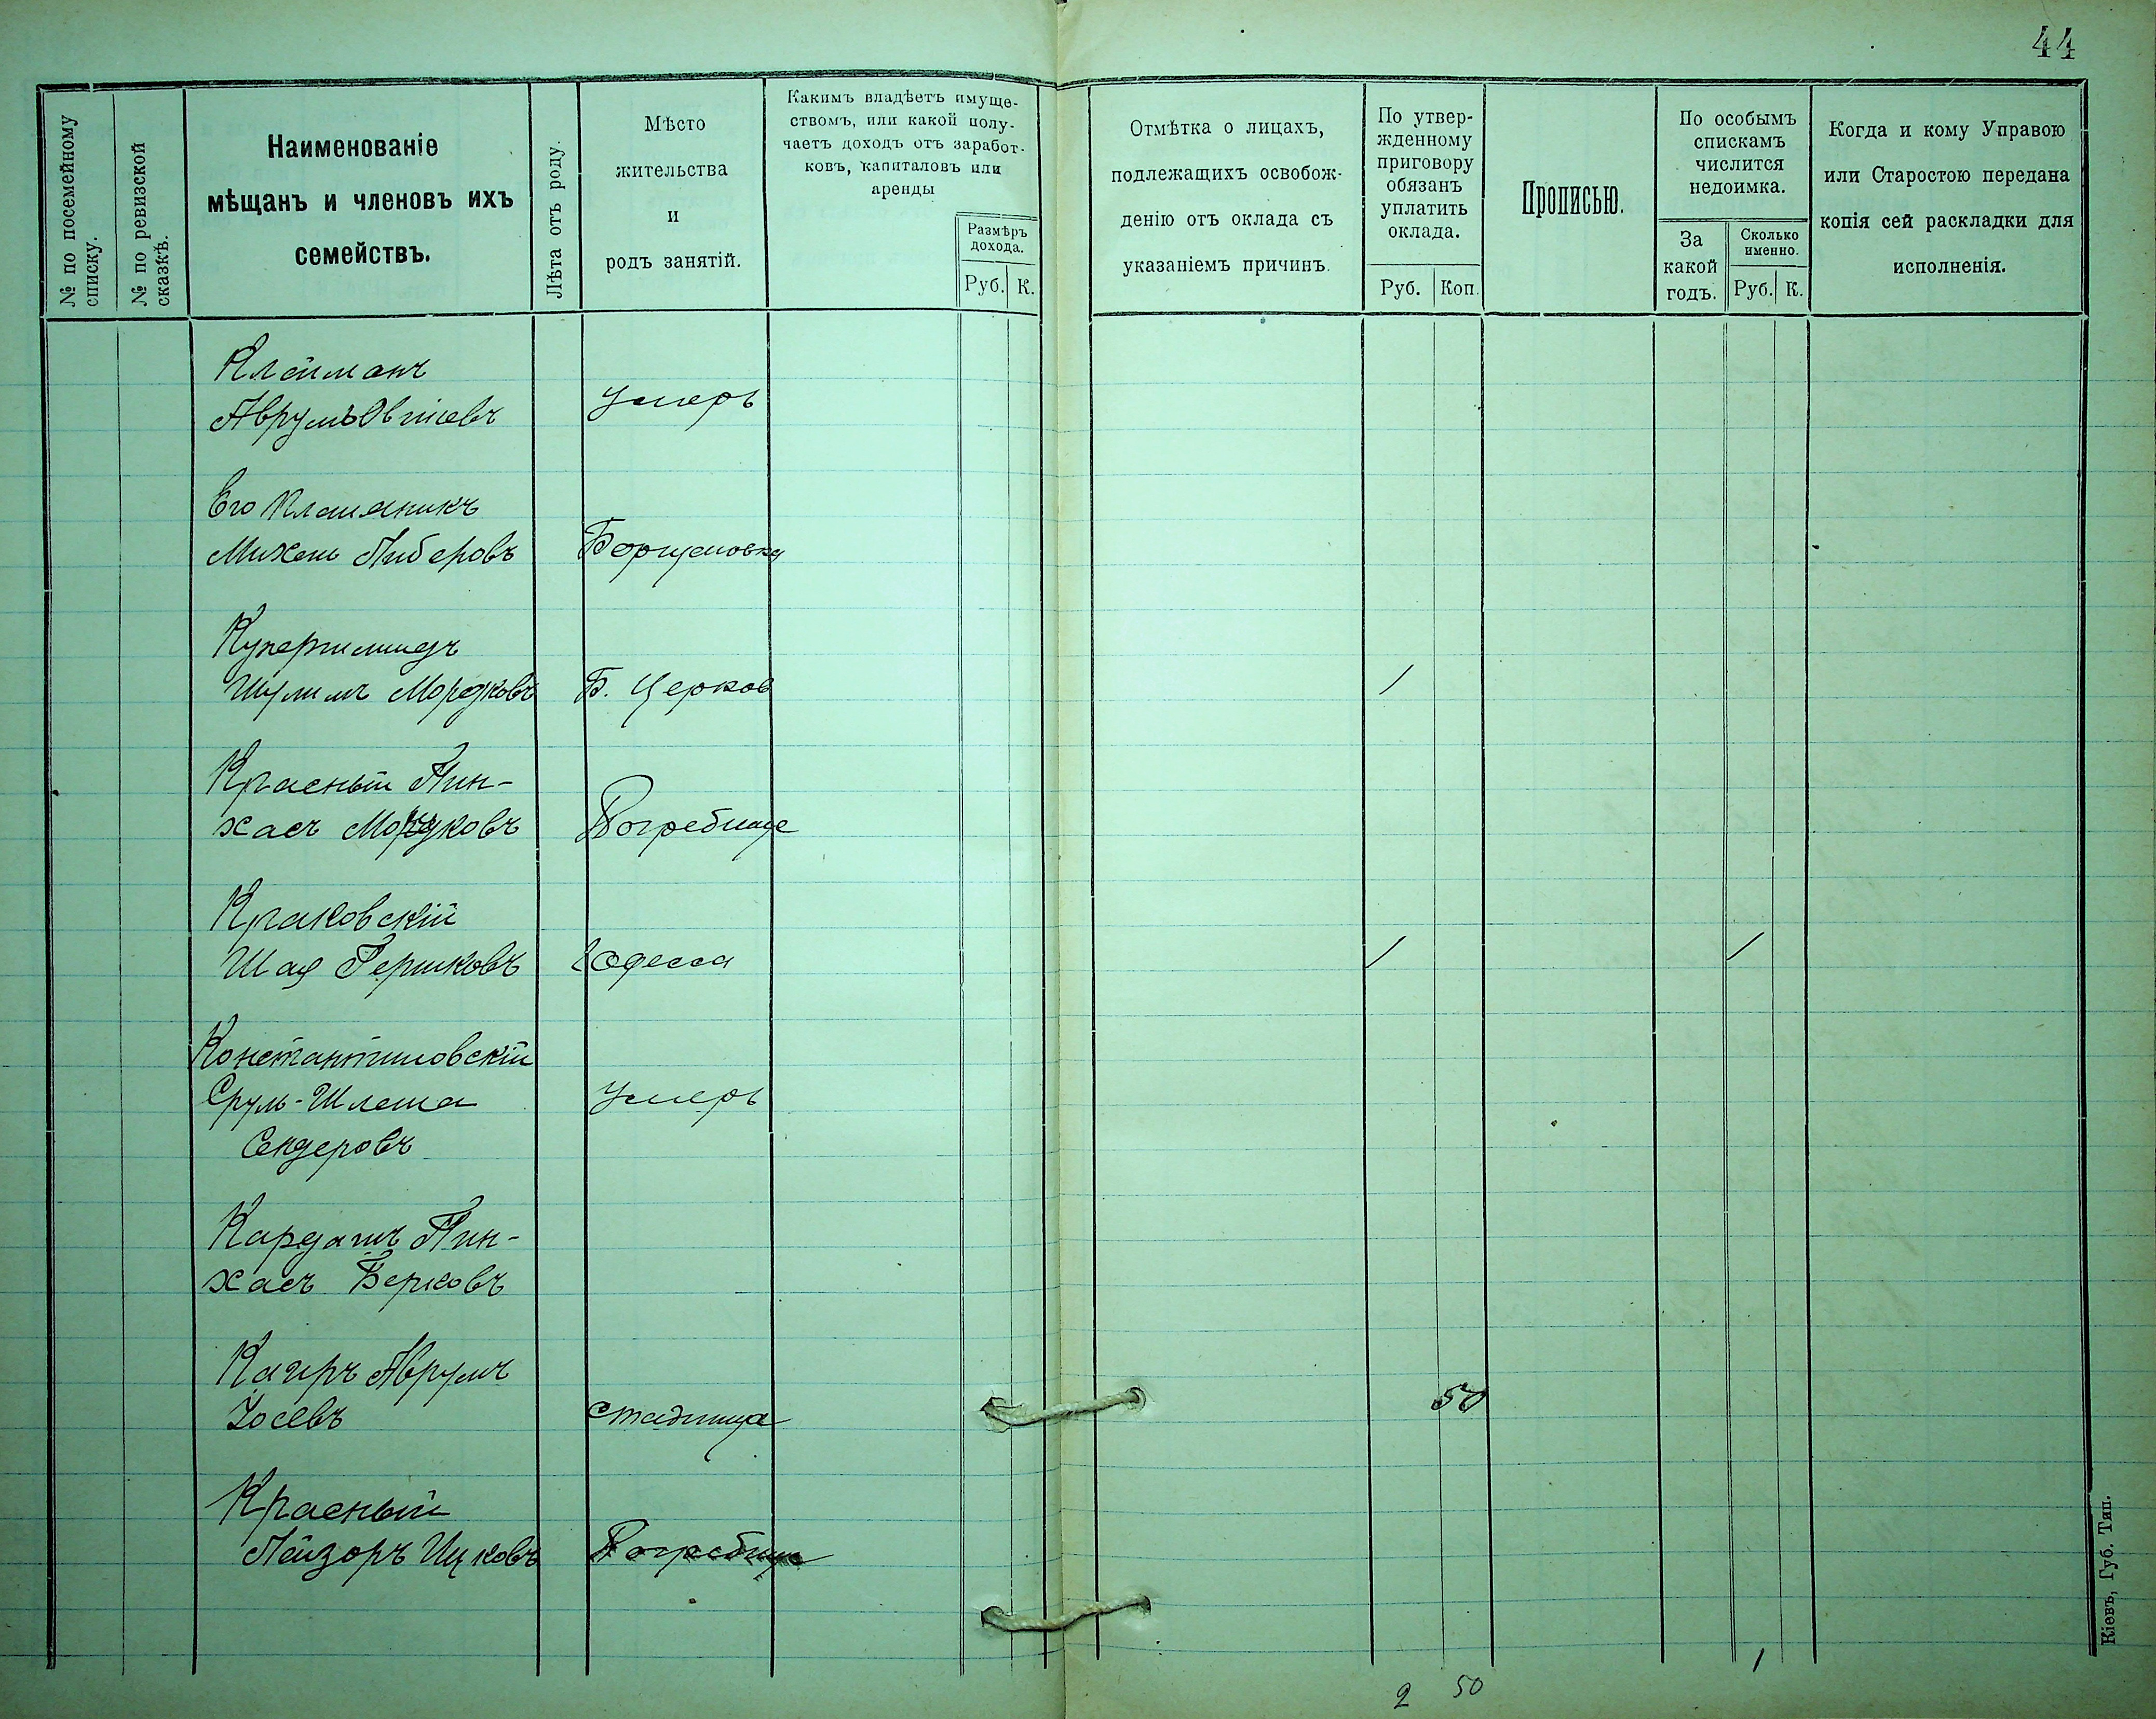 44
№ по посемейному
списку.
№ по ревизской
сказкѣ.
Наименованіе
мѣщанъ и членовъ ихъ
семействъ.
Лѣта отъ роду.
Мѣсто
жительства
и
родъ занятій.
Какимъ владѣетъ имуще-
ствомъ, или какой полу-
чаетъ доходъ отъ заработ-
ковъ, капиталовъ или
аренды
Размѣръ
дохода.
Руб. К.
Отмѣтка о лицахъ,
подлежащихъ освобож-
денію отъ оклада съ
указаніемъ причинъ.
По утвер-
жденному
приговору
обязанъ
уплатить
оклада.
Руб. Коп.
Прописью.
По особымъ
спискамъ
числится
недоимка.
За
какой
годъ.
Сколько
именно.
Руб. К.
Когда и кому Управою
или Старостою передана
копія сей раскладки для
исполненія.
Клейманъ
Аврумъ Овшіевъ Умеръ
Его племяникъ
Михель Либеровъ Борщаговка
Купершмидъ
Шулимъ Мордковъ Б. Церков 1
Красный Пин-
хасъ Мордковъ Погребище
Краковскій
Шая Гершковъ Одесса 1 1
Константиновскій
Сруль-Шлема Умеръ
Сендеровъ
Кардашъ Пин-
хасъ Берковъ
Кагиръ Аврумъ
Іосевъ Стадница 50
Красный
Лейзоръ Ицковъ Погребище
1
2 50
Кіевъ, Губ. Тип.